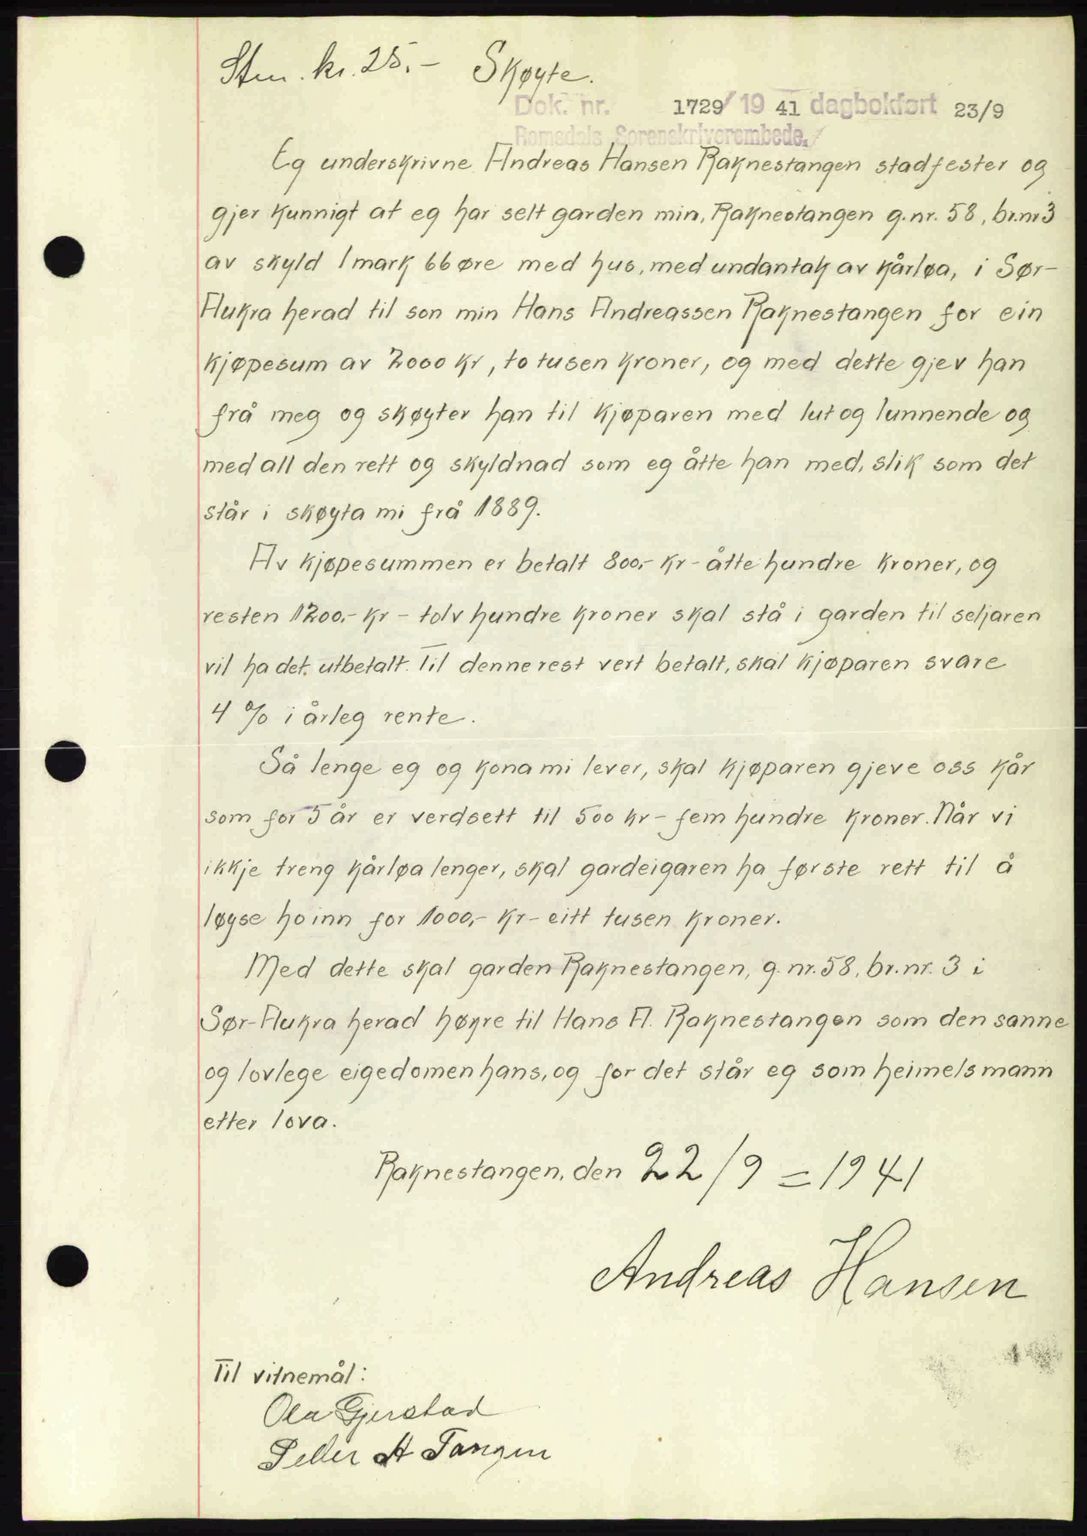 Stm. kr. 25.- Skøyte.
Dok. nr. 1729/19 41 dagbokført 23/9
Romsdals Sorenskriverembede.
Eg underskrivne Andreas Hansen Raknestangen stadfester og
gjer kunnigt at eg har selt garden min, Raknestangen g.nr. 58, br.nr 3
av skyld 1 mark 66 øre med hus, med undantak av kårløa, i Sør-
Aukra herad til son min Hans Andreassen Raknestangen for ein
kjøpesum av 2000 kr, to tusen kroner, og med dette gjev han
frå meg og skøyter han til kjøparen med lut og lunnende og
med all den rett og skyldnad som eg åtte han med, slik som det
står i skøyta mi frå 1889.
Av kjøpesummen er betalt 800,- kr - åtte hundre kroner, og
resten 1200,- kr - tolv hundre kroner skal stå i garden til seljaren
vil ha det utbetalt. Til denne rest vert betalt, skal kjøparen svare
4 % i årleg rente.
Så lenge eg og kona mi lever, skal kjøparen gjeve oss kår
som for 5 år er verdsett til 500 kr - fem hundre kroner. Når vi
ikkje treng kårløa lenger, skal gardeigaren ha første rett til å
løyse ho inn for 1000,- kr - eitt tusen kroner.
Med dette skal garden Raknestangen, g.nr. 58, br.nr. 3 i
Sør-Aukra herad høyre til Hans A. Raknestangen som den sanne
og lovlege eigedomen hans, og for det står eg som heimelsmann
etter lova.
Raknestangen, den 22/9 = 1941
Andreas Hansen
Til vitnemål:
Ola Gjerstad
Petter A Tangen